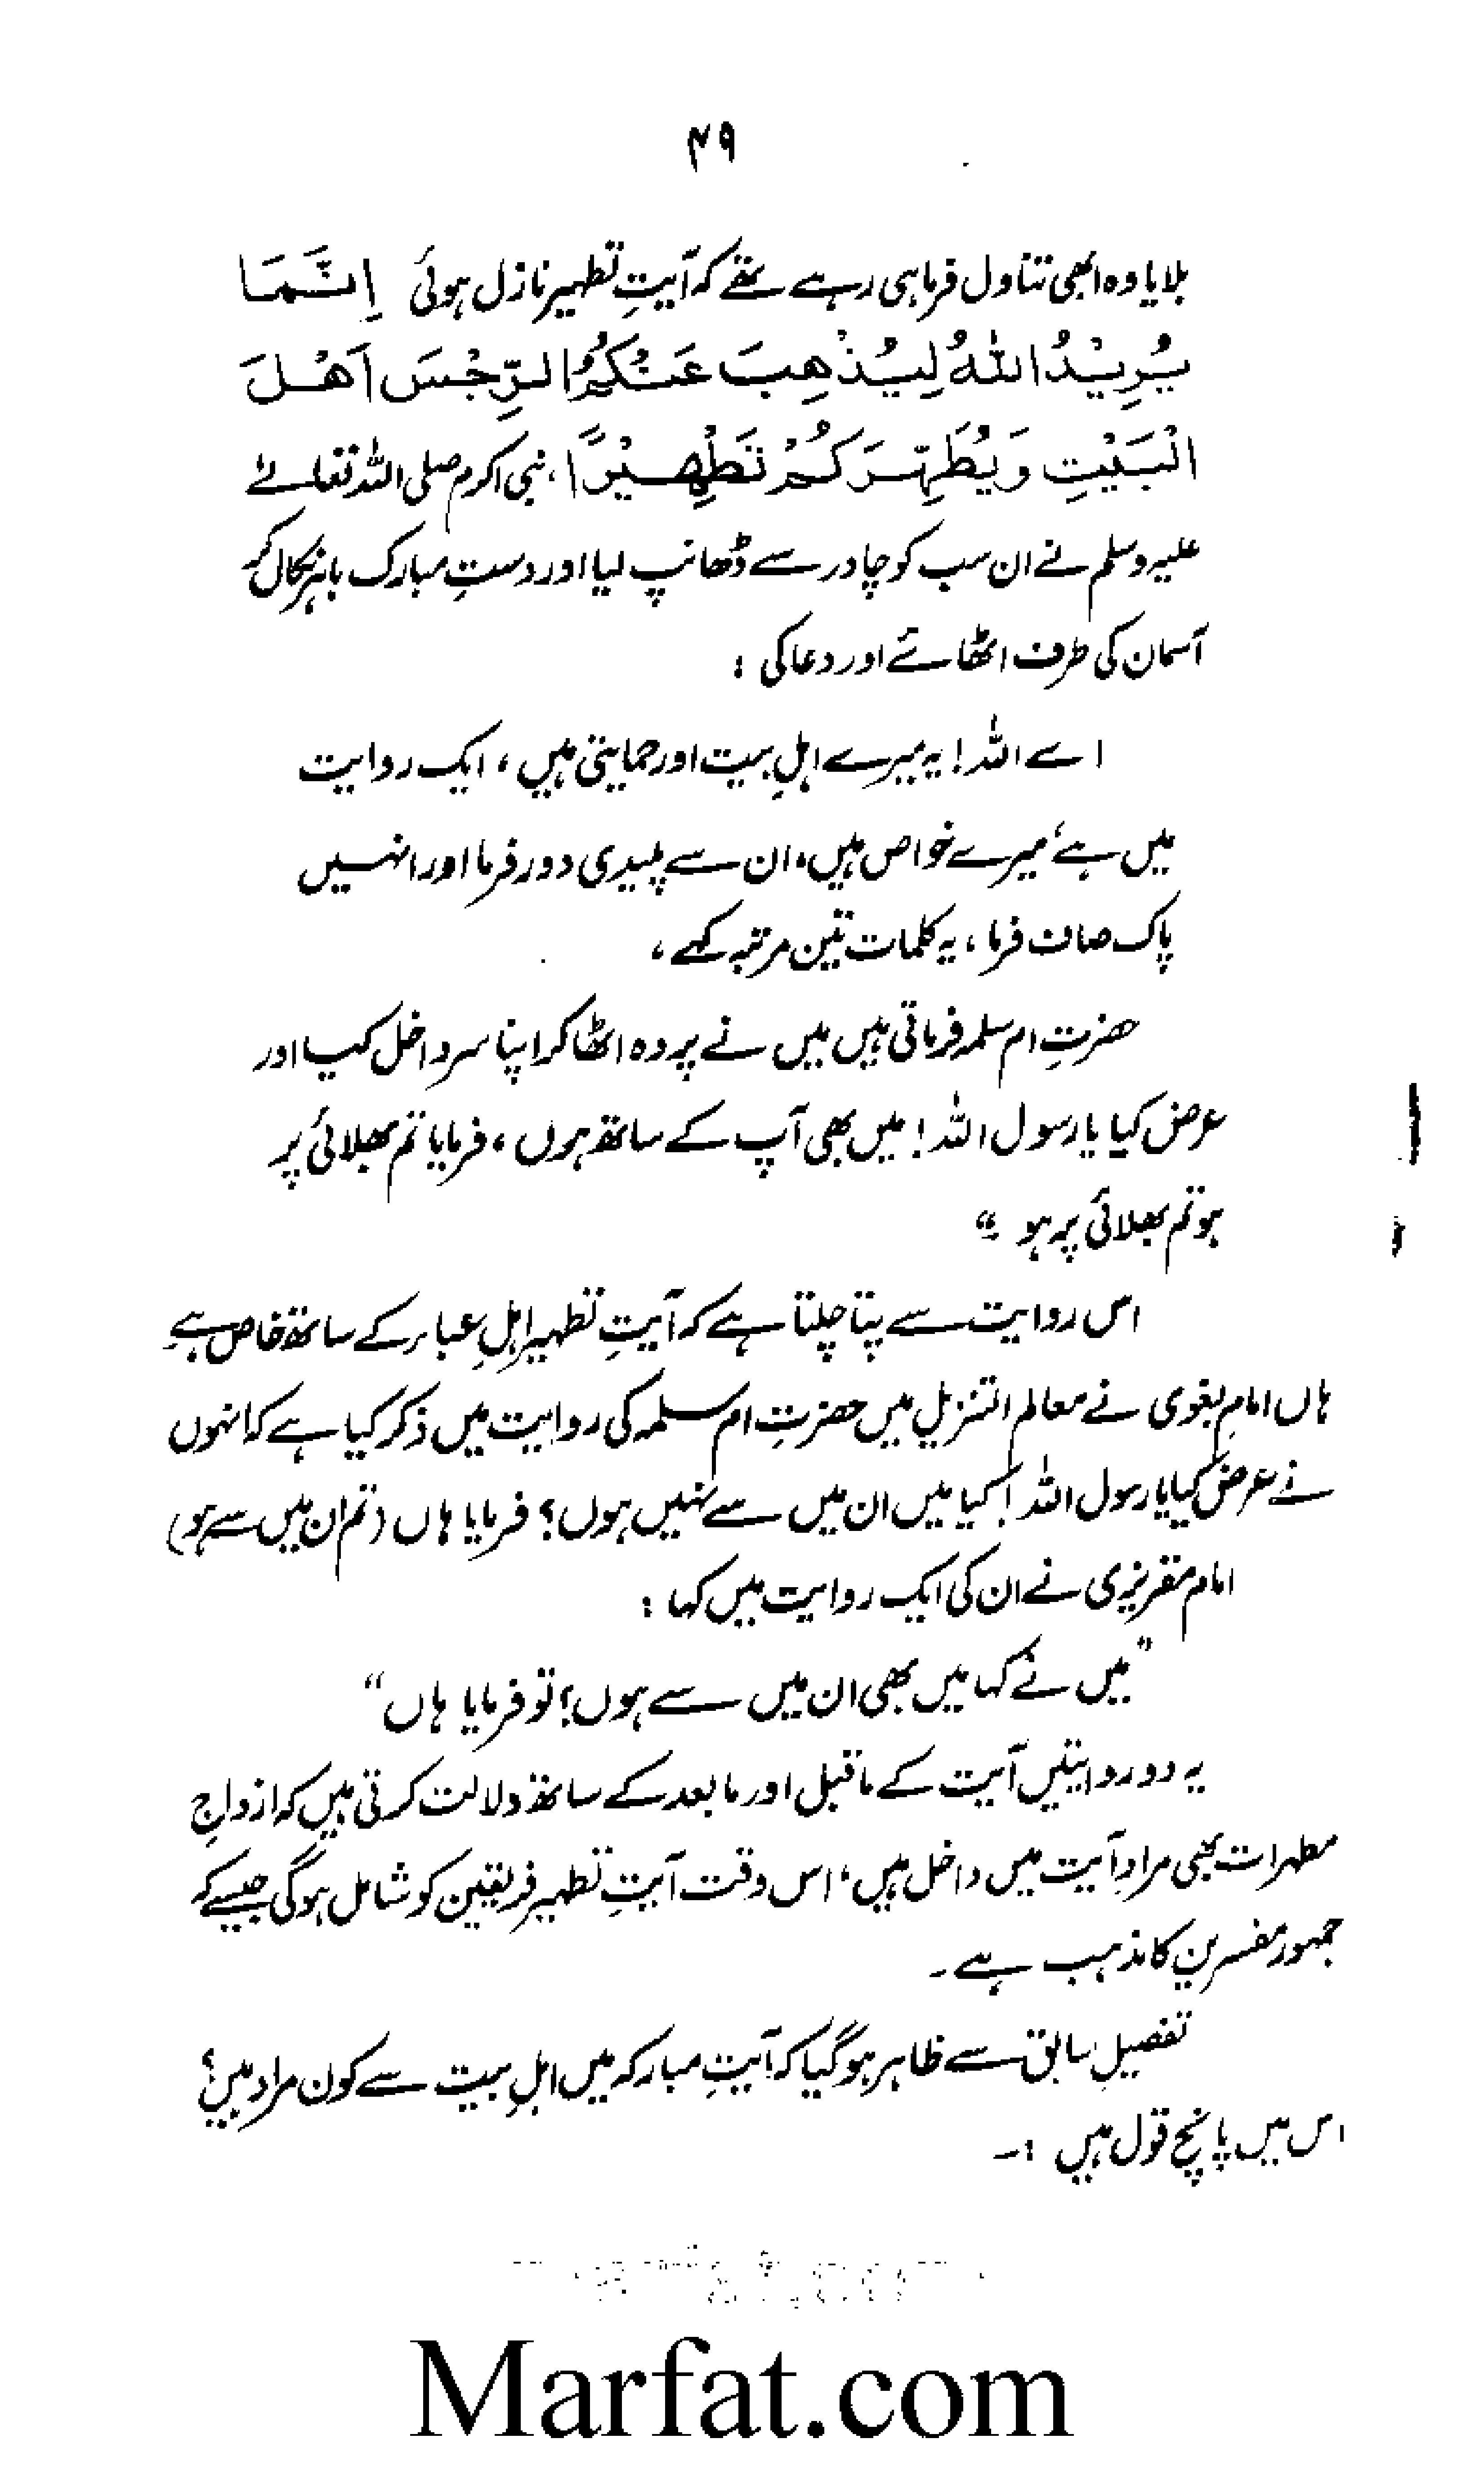 ۴۹
بلایا وہ ابھی تناول فرما ہی رہے تھے کہ آیتِ تطہیر نازل ہوئی اِنَّمَا
یُرِیْدُ اللّٰہُ لِیُذْھِبَ عَنْکُمُ الرِّجْسَ اَھْلَ
الْبَیْتِ وَیُطَھِّرَکُمْ تَطْھِیْرًا، نبی اکرم صلی اللہ تعالےٰ
علیہ وسلم نے ان سب کو چادر سے ڈھانپ لیا اور دستِ مبارک باہر نکال کر
آسمان کی طرف اٹھائے اور دعا کی :
اے اللہ! یہ میرے اہلِ بیت اور حمایتی ہیں ، ایک روایت
میں ہے، میرے خواص ہیں، ان سے پلیدی دور فرما اور انہیں
پاک صاف فرما ، یہ کلمات تین مرتبہ کہے ،
حضرتِ ام سلمہ فرماتی ہیں میں نے پردہ اٹھا کر اپنا سر داخل کیا اور
عرض کیا یا رسول اللہ! میں بھی آپ کے ساتھ ہوں ، فرمایا تم بھلائی پر
ہو تم بھلائی پر ہو ۔“
اس روایت سے پتا چلتا ہے کہ آیتِ تطہیر اہلِ عباء کے ساتھ خاص ہے
ہاں امام بغوی نے معالم التنزیل میں حضرتِ ام سلمہ کی روایت میں ذکر کیا ہے کہ انہوں
نے عرض کیا یا رسول اللہ ! کیا میں ان میں سے نہیں ہوں؟ فرمایا ہاں (تم ان میں سے ہو)
امام مقریزی نے ان کی ایک روایت میں کہا :
”میں نے کہا میں بھی ان میں سے ہوں؟ تو فرمایا ہاں“
یہ دو روایتیں آیت کے ماقبل اور مابعد کے ساتھ دلالت کرتی ہیں کہ ازواجِ
مطہرات بھی مرادِ آیت میں داخل ہیں، اس وقت آیتِ تطہیر فریقین کو شامل ہوگی جیسے کہ
جمہور مفسرین کا مذہب ہے ۔
تفصیلِ سابق سے ظاہر ہوگیا کہ آیتِ مبارکہ میں اہلِ بیت سے کون مراد ہیں؟
اس میں پانچ قول ہیں :۔
Marfat.com